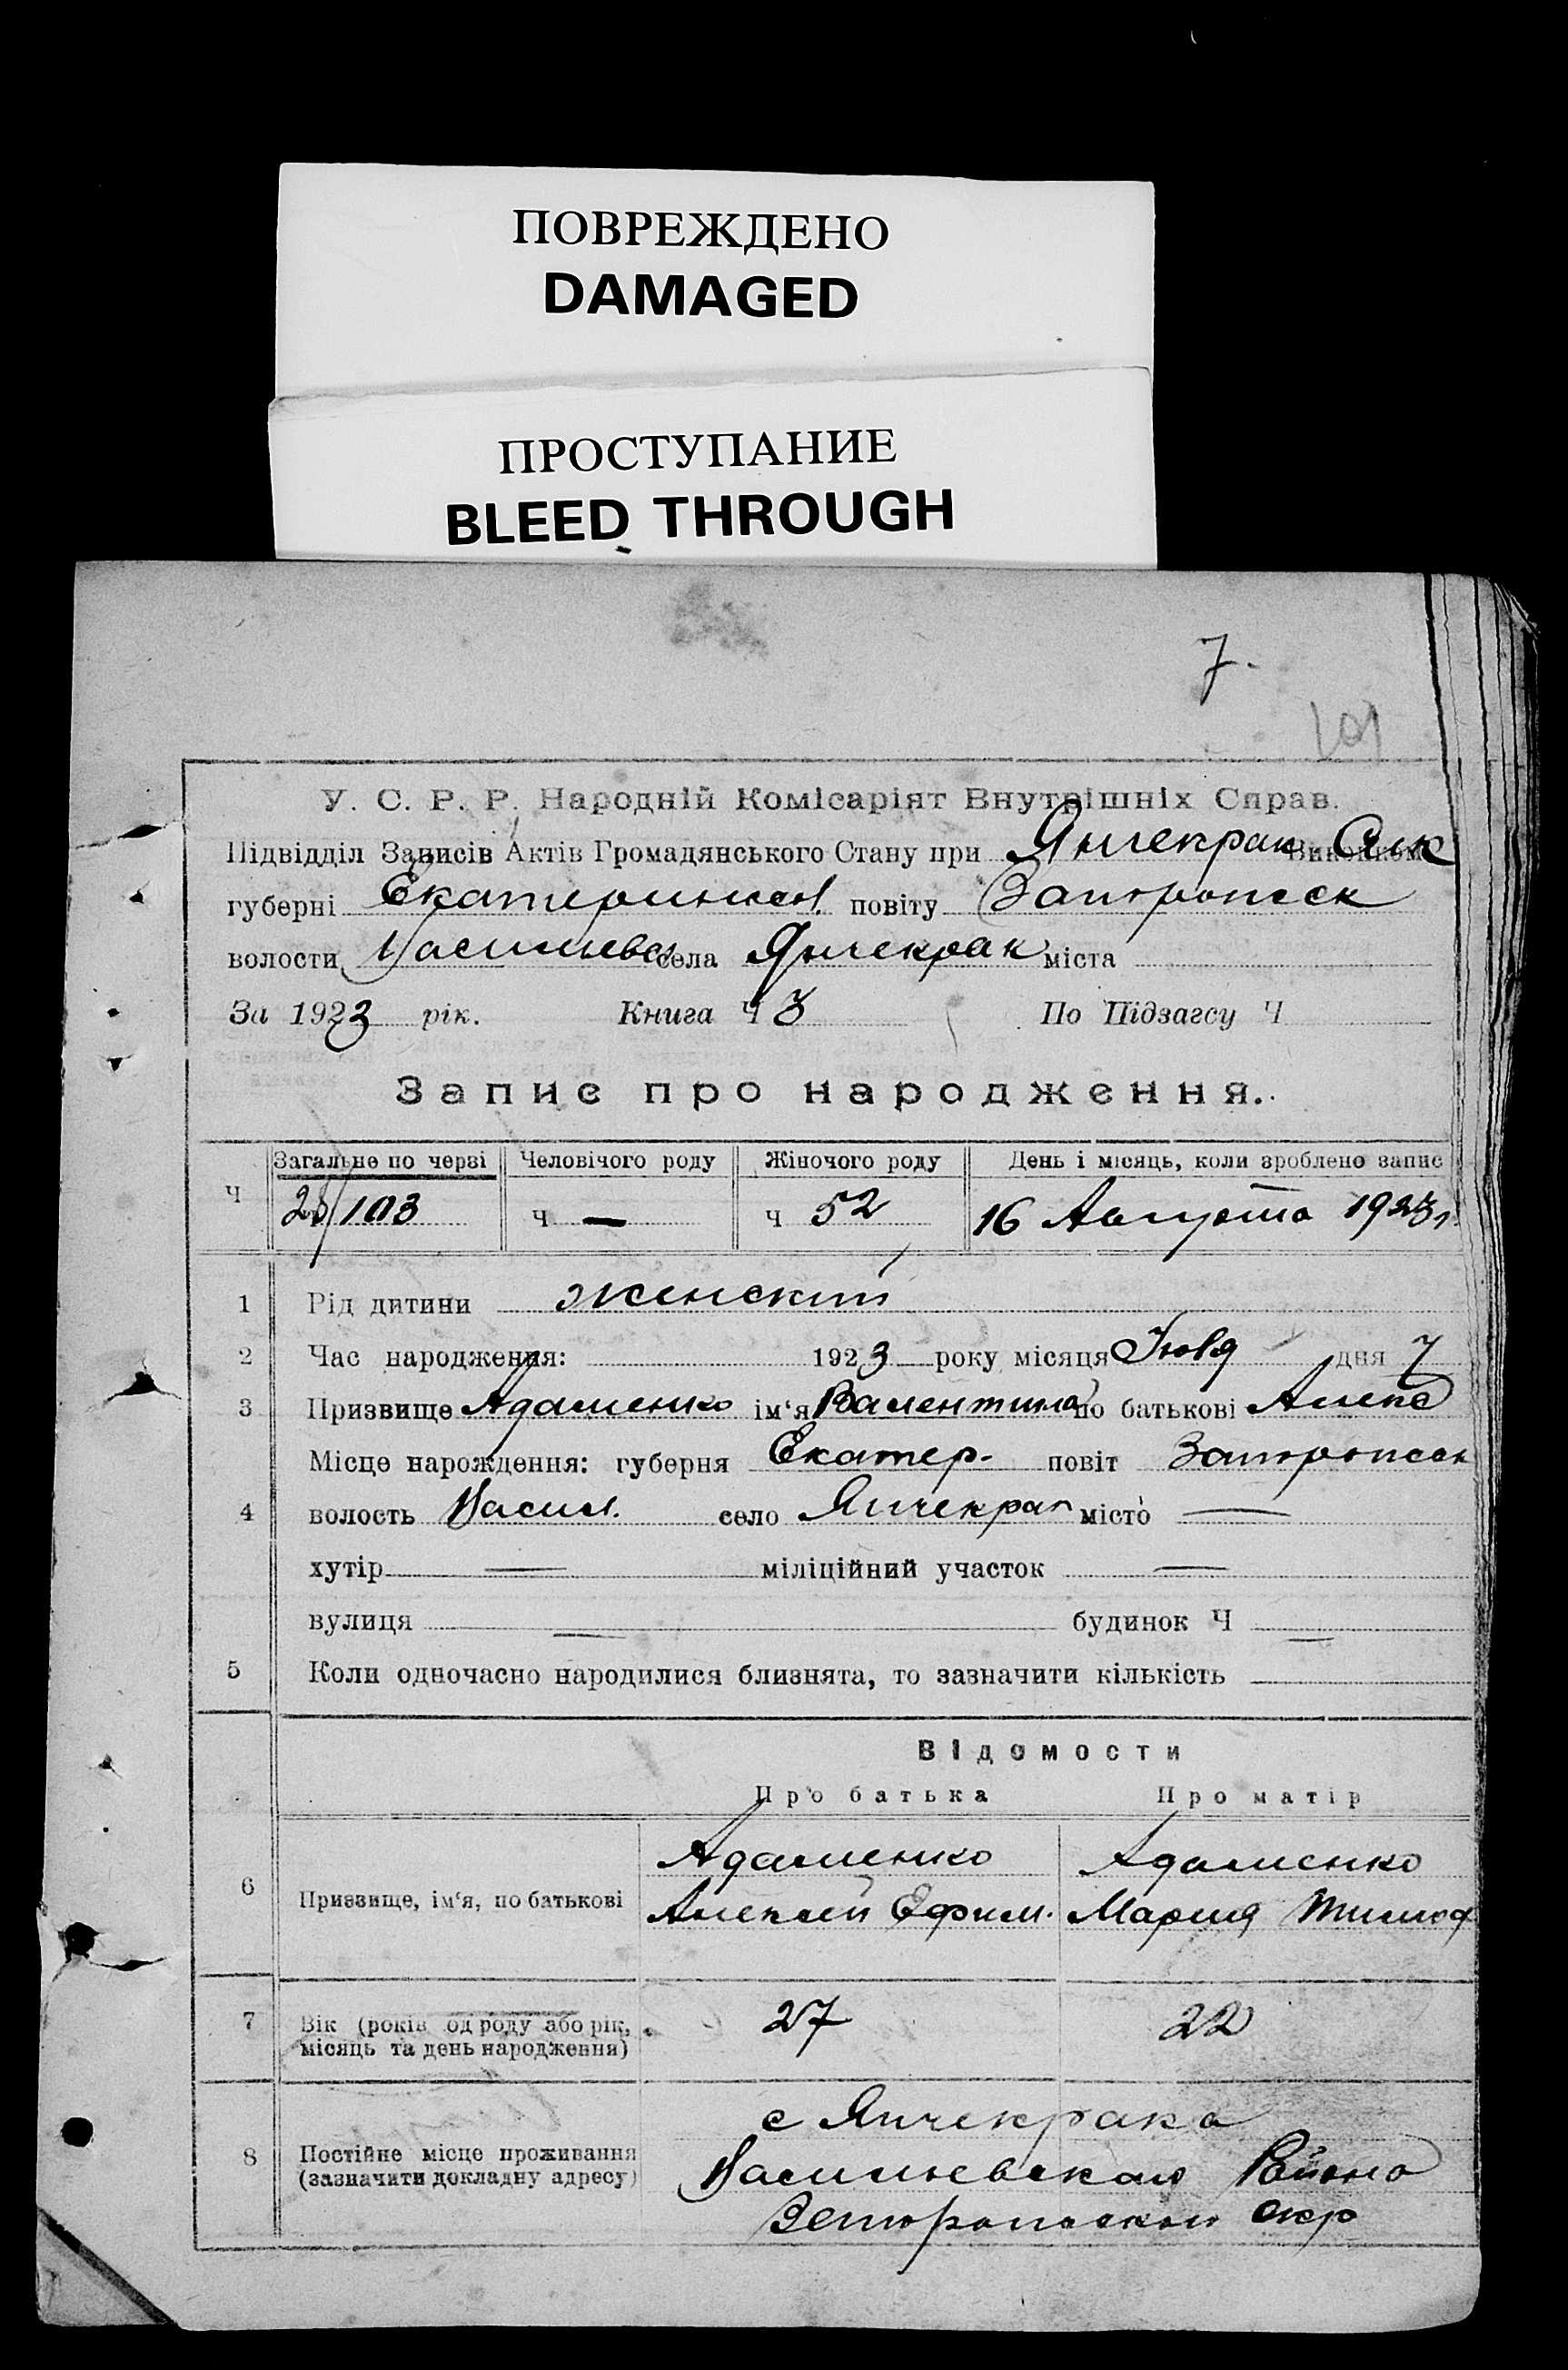 ПОВРЕЖДЕНО
DAMAGED
ПРОСТУПАНИЕ
BLEED THROUGH
7.
101
У. С. Р. Р. Народній Комісаріят Внутрішніх Справ.
Підвідділ Записів Актів Громадянського Стану при Янчекрак Виконком
губерні Екатеринос. повіту Запорожск
волости Васильев села Янчекрак міста
За 1923 рік. Книга Ч 3 По Підзагсу Ч
Запис про народження.
Ч Загальне по черзі Человічого роду Жіночого роду День і місяць, коли зроблено запис
103 ч — ч 52 16 Августа 1923 г.
1 Рід дитини женский
2 Час народження: 1923 року місяця дня 7
3 Призвище Адаменко ім‘я Валентина по батькові Алекс
Місце нарождення: губерня Екатер. повіт Запорожск
4 волость Васил. село Янчекрак місто —
хутір — міліційний участок —
вулиця — будинок Ч —
5 Коли одночасно народилися близнята, то зазначити кількість
Відомости
Про батька Про матір
Адаменко Адаменко
6 Призвище, ім‘я, по батькові Алексей Ефим. Мария Тимоф
7 Вік (років од роду або рік, місяць та день народження) 27 22
с Янчекрака
8 Постійне місце проживання Васильевского Района
(зазначити докладну адресу) Запорожского окр